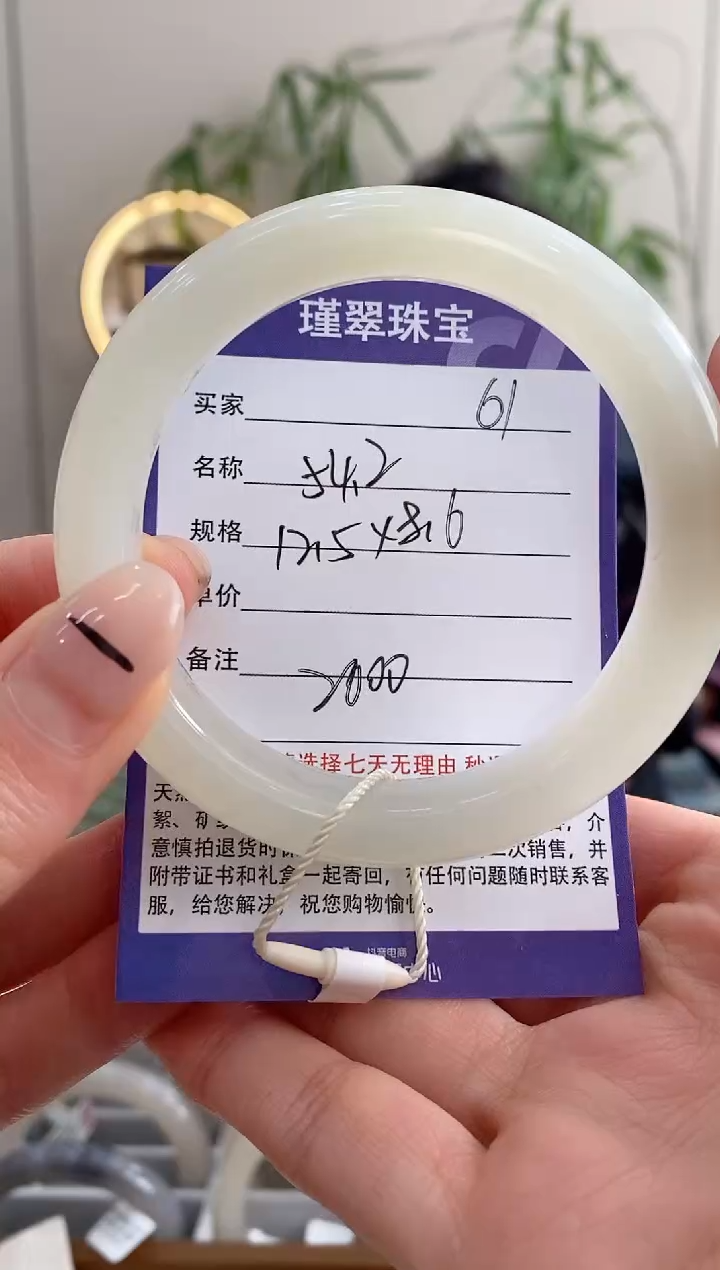 瑾翠珠宝
买家 61
名称 54.2
规格 12.5×8.6
单价
备注 2000
选择七天无理由
天然
絮、矿 介
意慎拍退货时保 二次销售，并
附带证书和礼盒一起寄回，有任何问题随时联系客
服，给您解决，祝您购物愉快。
抖音电商
心